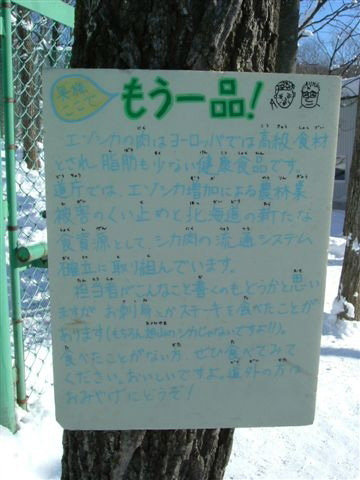 奥様、ここで
もう一品!
エゾシカの肉はヨーロッパでは高級食材
とされ脂肪も少ない健康食品です。
道庁では、エゾシカ増加による農林業
被害のくい止めと北海道の新たな
食資源として、シカ肉の流通システム
確立に取り組んでいます。
担当者がこんなこと書くのもどうかと思い
ますが、お刺身とかステーキを食べたことが
あります(もちろん旭山のシカじゃないですよ!!)。
食べたことがない方、ぜひ食べてみて
ください。おいしいですよ。道外の方は
おみやげにどうぞ!